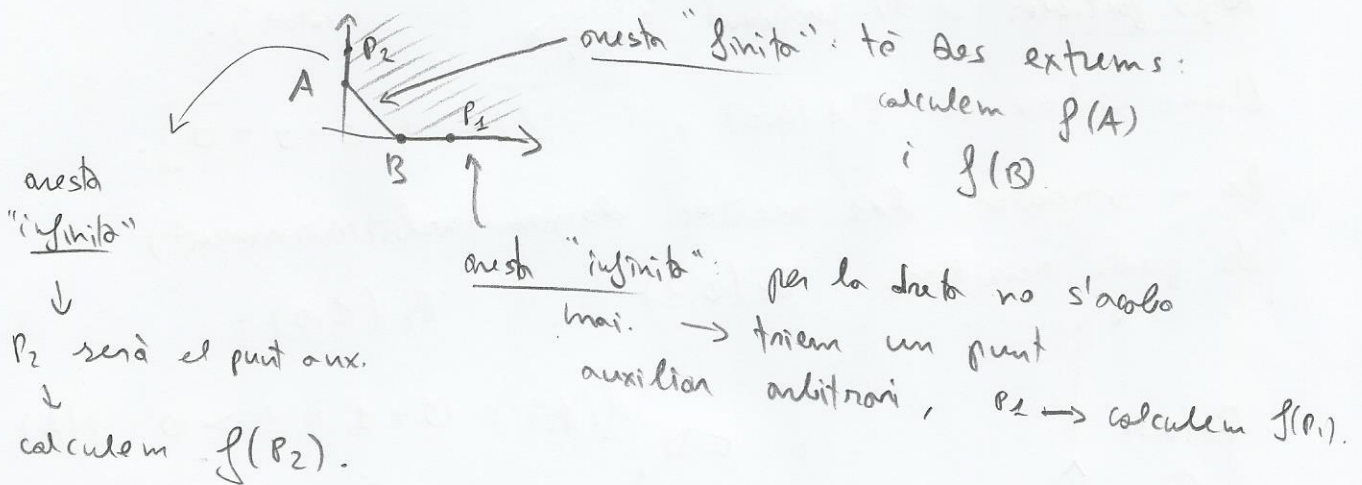 P2
A
P1
B
aresta "finita": té dos extrems:
calculem f(A)
i f(B)
aresta
"infinita"
↓
P2 serà el punt aux.
↓
calculem f(P2).
aresta "infinita": per la dreta no s'acaba
mai. → triem un punt
auxiliar arbitrari, P1 → calculem f(P1).